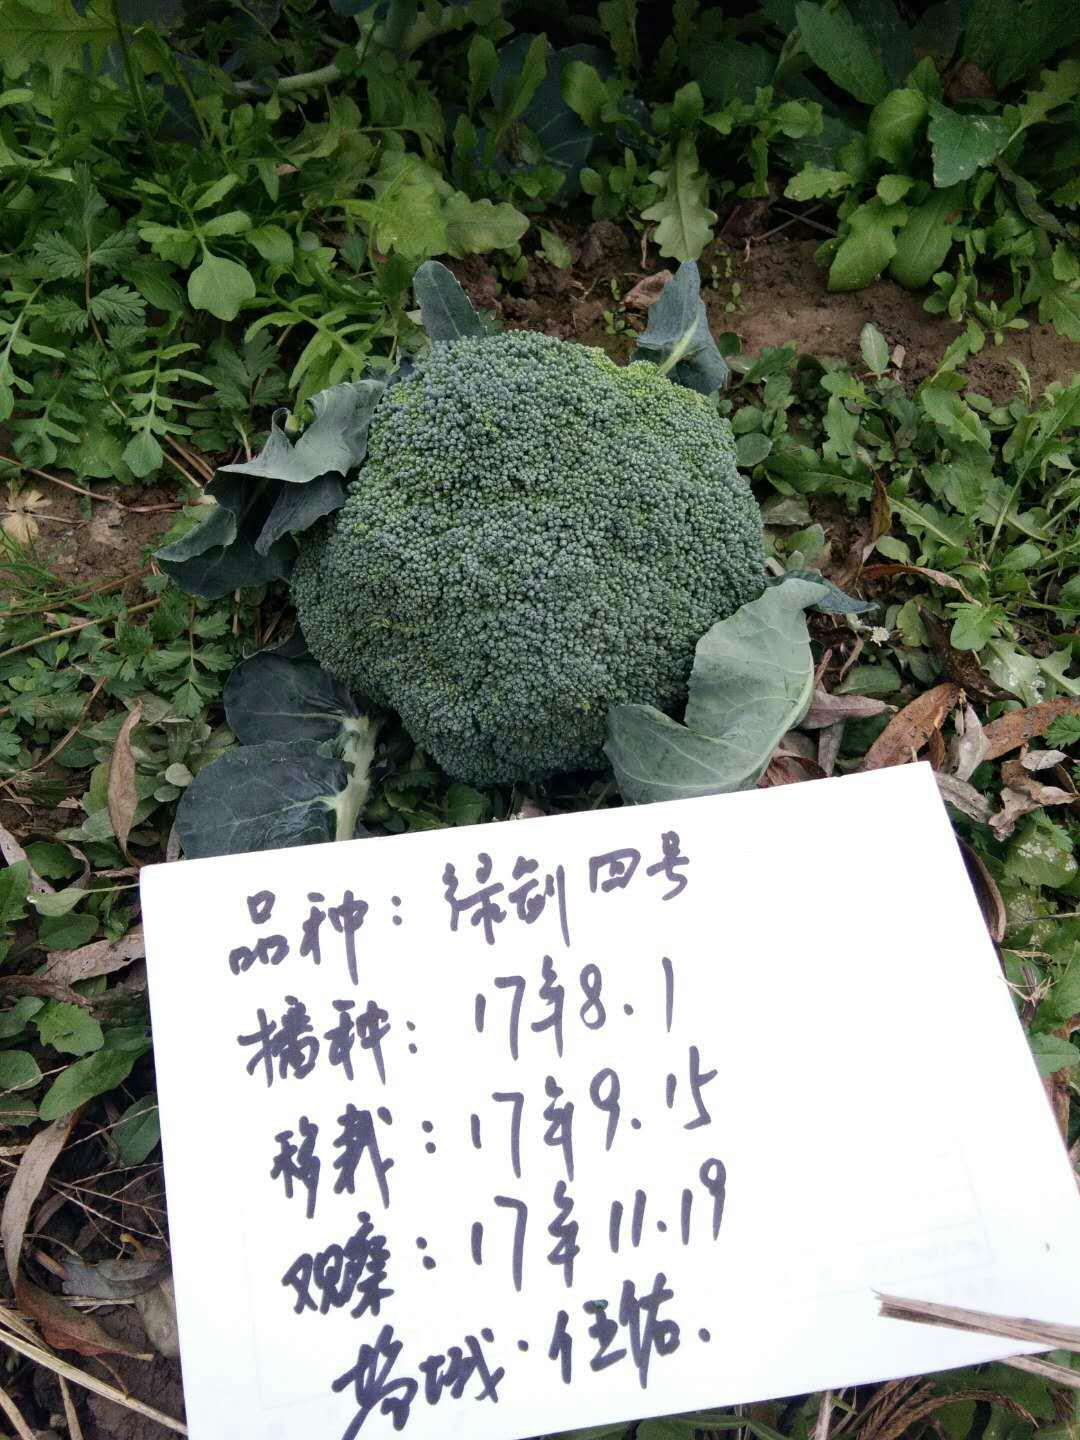 品种：绿剑四号
播种：17年8.1
移栽：17年9.15
观察：17年11.19
城·任佑.